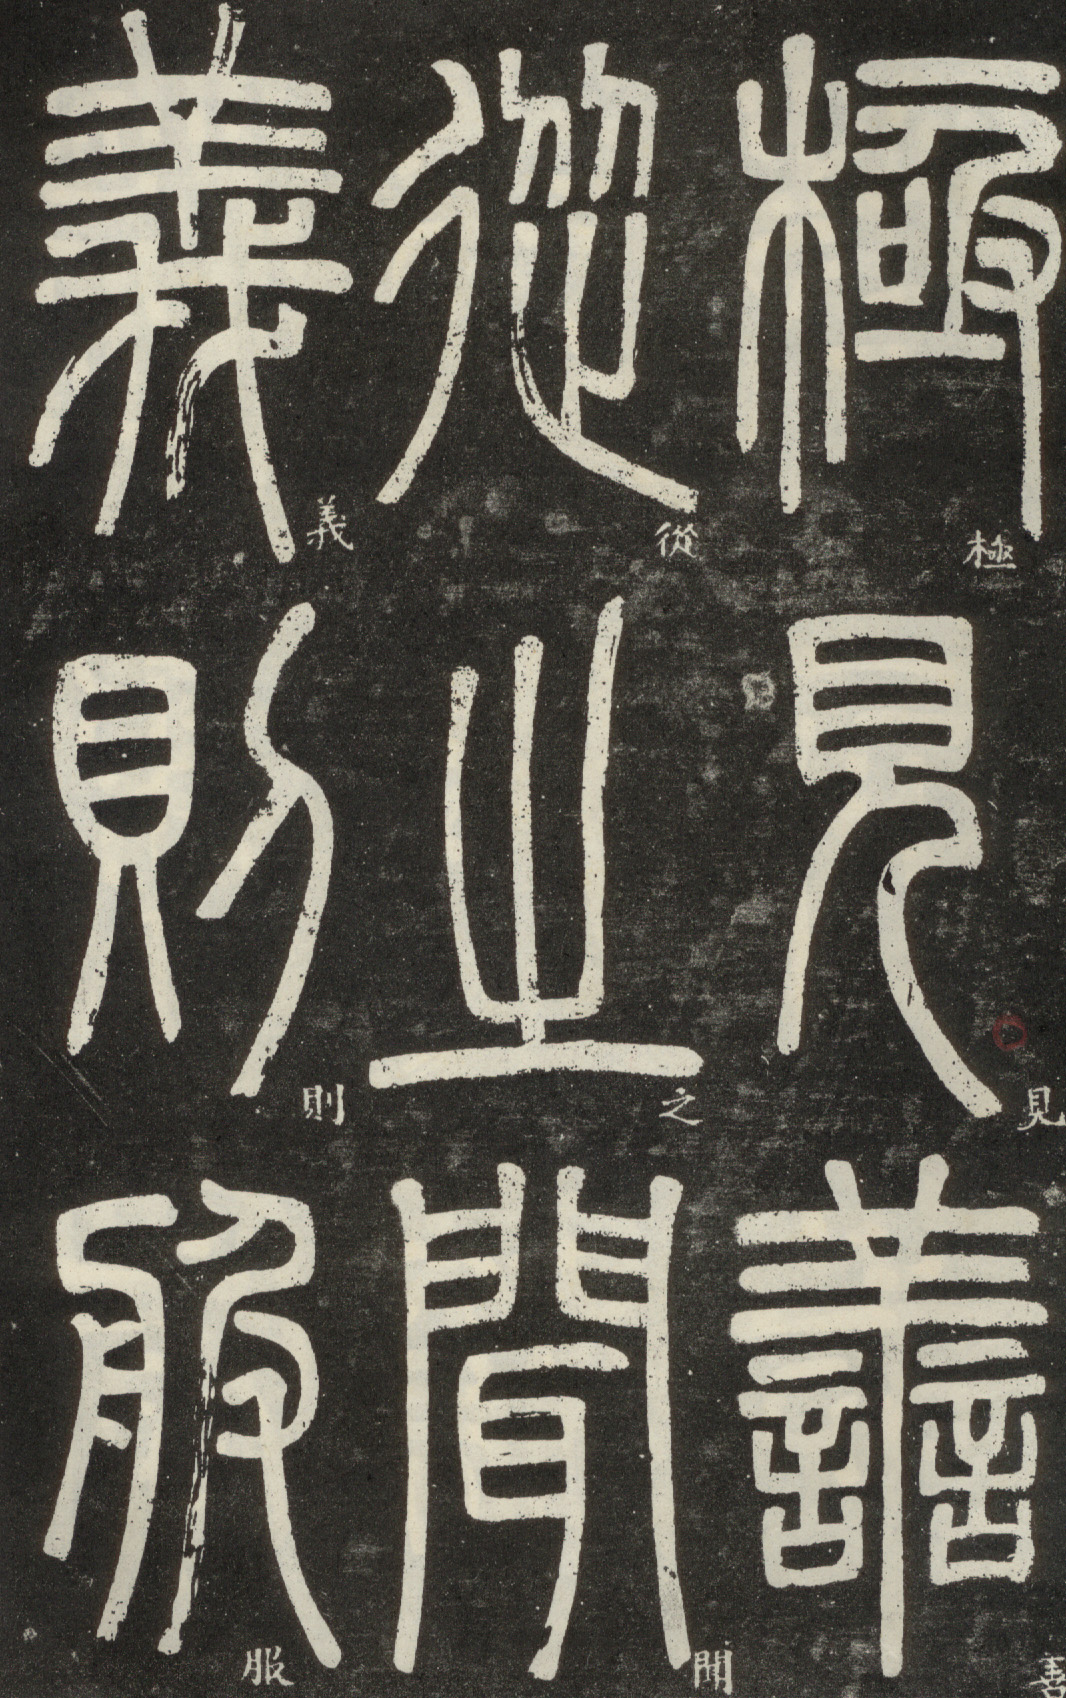 極見善
從之聞
義則服